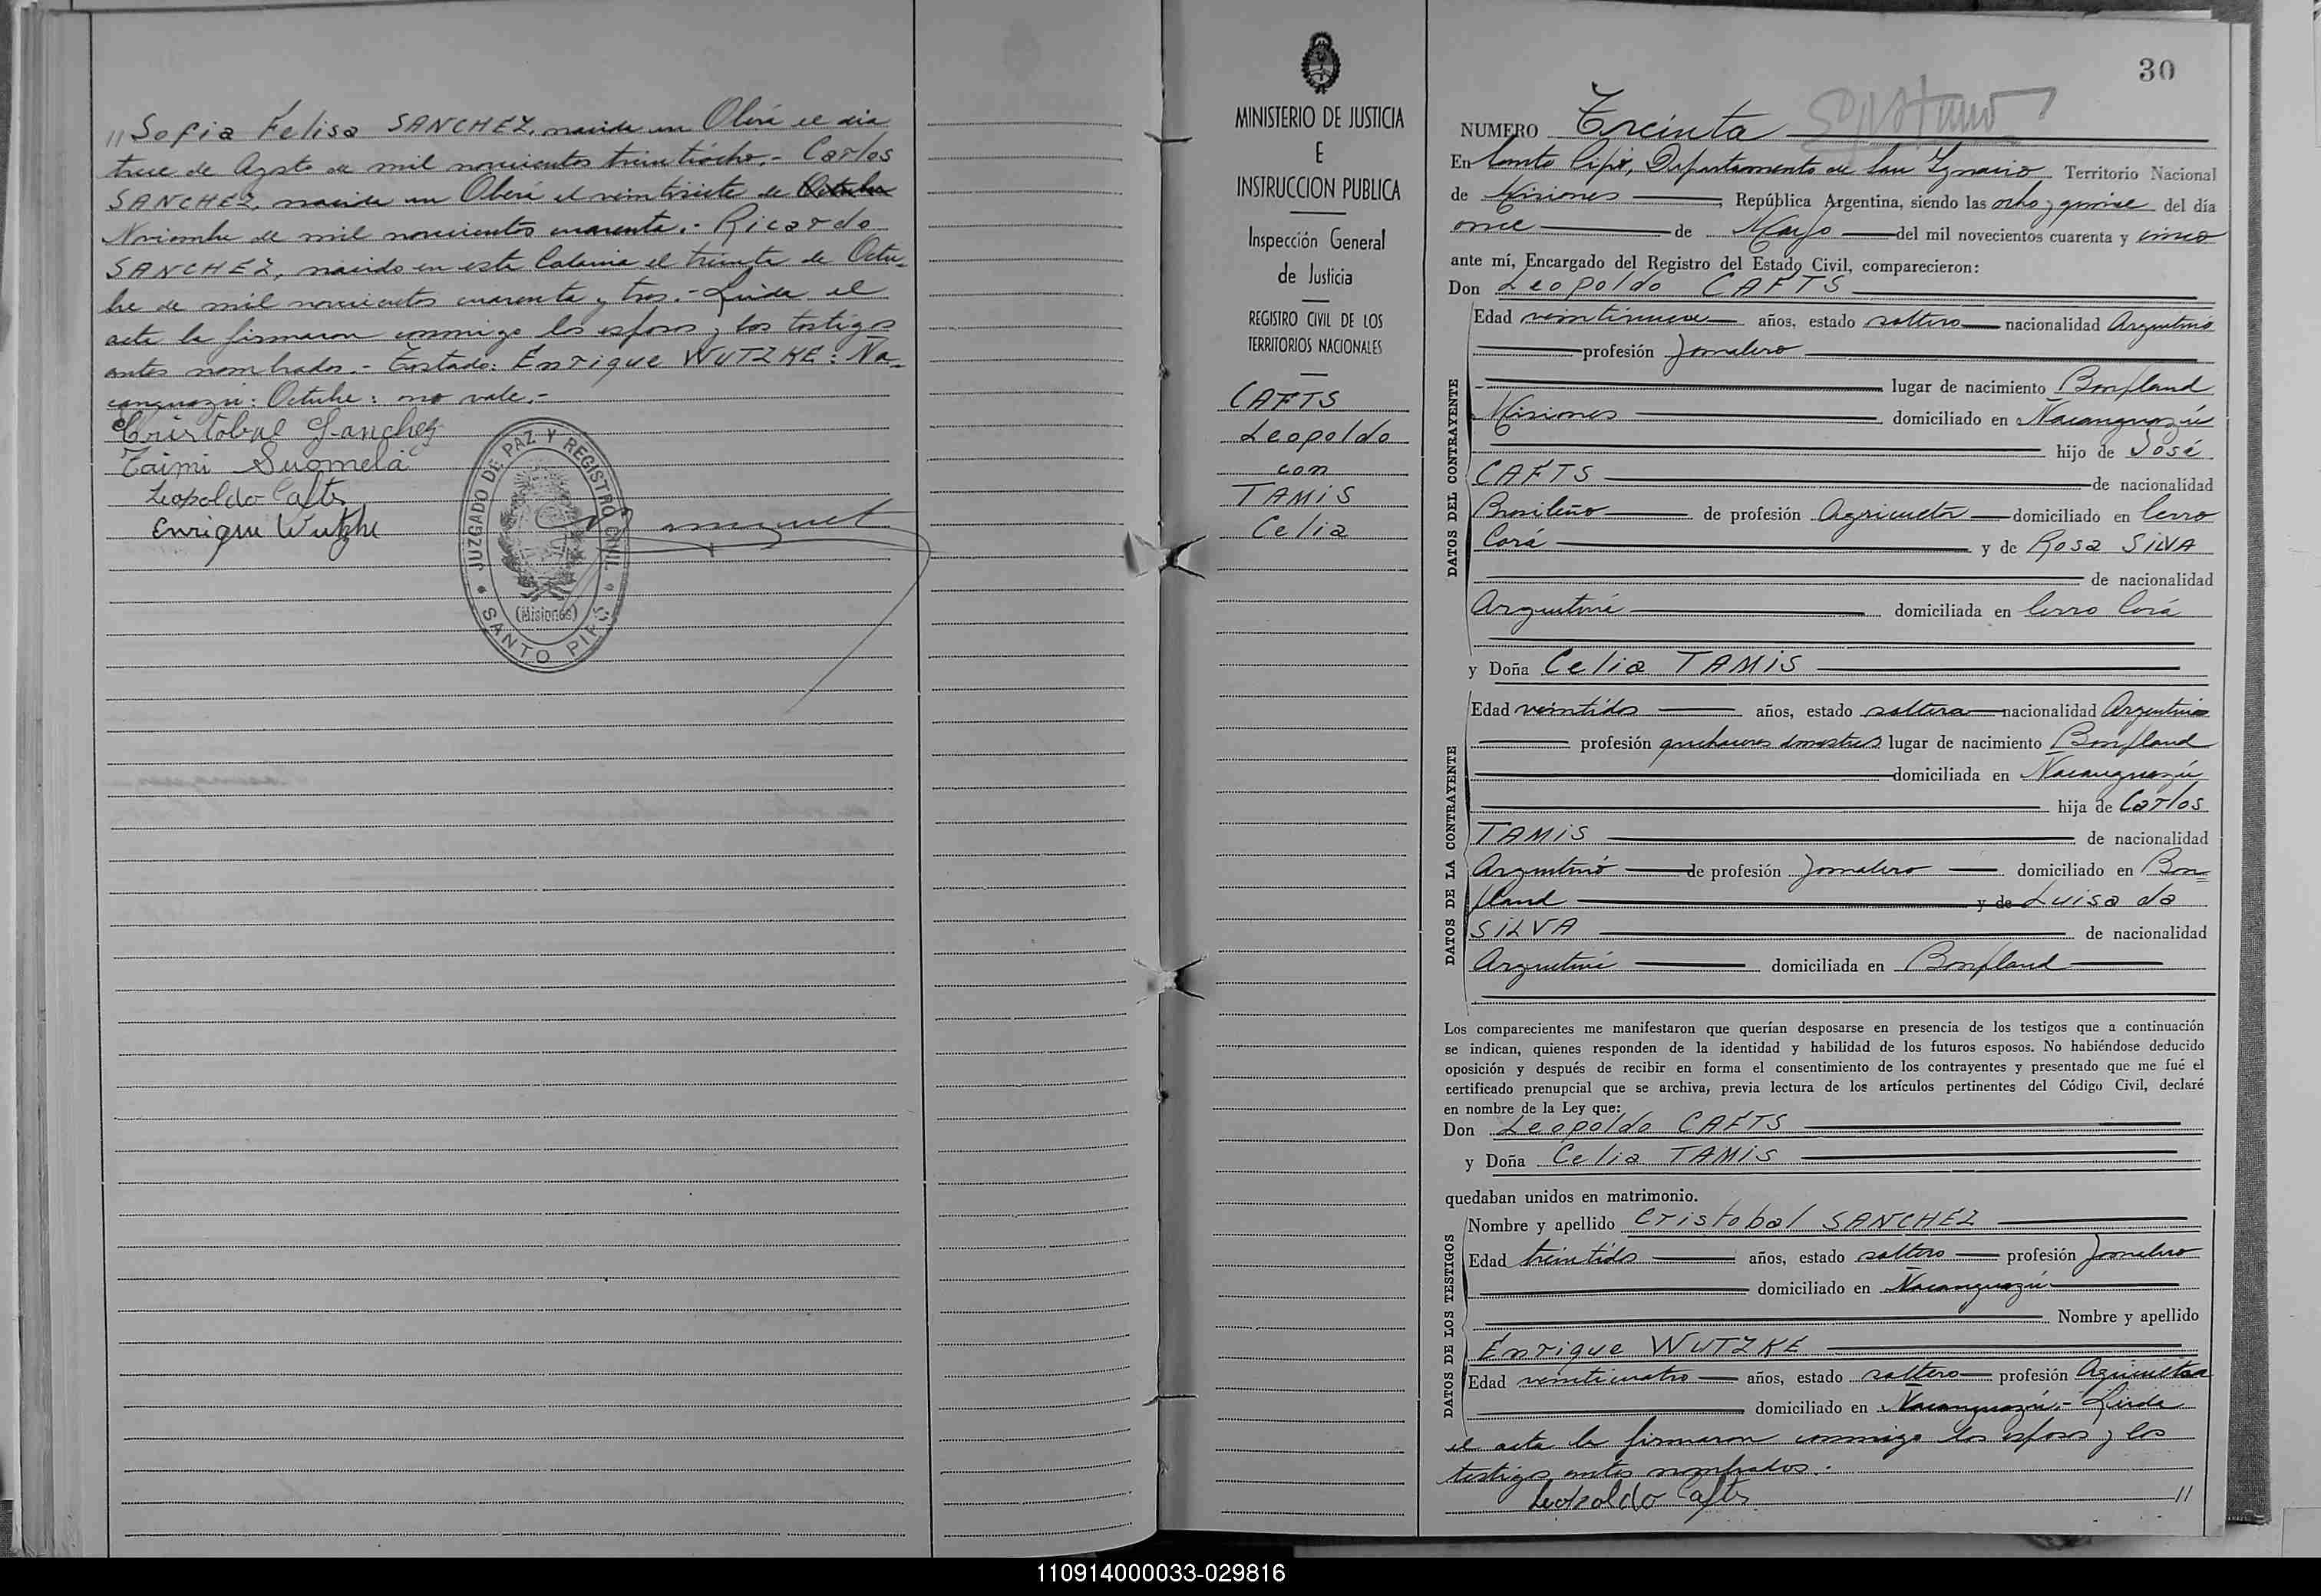 // Sofia Felisa SANCHEZ, nacida en Oberá el dia
trece de Agosto de mil novecientos treintiocho.- Carlos
SANCHEZ, nacido en Oberá el veintisiete de Octubre
Noviembre de mil novecientos cuarenta.- Ricardo
SANCHEZ, nacido en esta Colonia el treinta de Octu-
bre de mil novecientos cuarenta y tres.- Leida el
acta la firmaron conmigo los esposos y los testigos
antes nombrados.- Testado: Enrique WUTZKE: Ña-
canguazú: Octubre: no vale.-
Cristobal Sanchez
Taimi Suomela
Leopoldo Cafts
Enrique Wutzke
JUZGADO DE PAZ Y REGISTRO CIVIL
(Misiones)
SANTO PIPÓ
MINISTERIO DE JUSTICIA
E
INSTRUCCION PUBLICA
Inspección General
de Justicia
REGISTRO CIVIL DE LOS
TERRITORIOS NACIONALES
CAFTS
Leopoldo
con
TAMIS
Celia
30
NUMERO Treinta
En Santo Pipó, Departamento de San Ignacio Territorio Nacional
de Misiones, República Argentina, siendo las ocho y quince del día
once de Mayo del mil novecientos cuarenta y cinco
ante mí, Encargado del Registro del Estado Civil, comparecieron:
Don Leopoldo CAFTS
DATOS DEL CONTRAYENTE
Edad veintinueve años, estado soltero nacionalidad Argentino
profesión Jornalero
lugar de nacimiento Bonpland
Misiones domiciliado en Ñacanguazú
hijo de José
CAFTS de nacionalidad
Brasileño de profesión Agricultor domiciliado en Cerro
Corá y de Rosa SILVA
de nacionalidad
Argentina domiciliada en Cerro Corá
y Doña Celia TAMIS
DATOS DE LA CONTRAYENTE
Edad veintidos años, estado soltera nacionalidad Argentina
profesión quehaceres domesticos lugar de nacimiento Bonpland
domiciliada en Ñacanguazú
hija de Carlos
TAMIS de nacionalidad
Argentino de profesión Jornalero domiciliado en Bon=
pland y de Luisa da
SILVA de nacionalidad
Argentina domiciliada en Bonpland
Los comparecientes me manifestaron que querían desposarse en presencia de los testigos que a continuación
se indican, quienes responden de la identidad y habilidad de los futuros esposos. No habiéndose deducido
oposición y después de recibir en forma el consentimiento de los contrayentes y presentado que me fué el
certificado prenupcial que se archiva, previa lectura de los artículos pertinentes del Código Civil, declaré
en nombre de la Ley que:
Don Leopoldo CAFTS
y Doña Celia TAMIS
quedaban unidos en matrimonio.
DATOS DE LOS TESTIGOS
Nombre y apellido Cristobal SANCHEZ
Edad treintidos años, estado soltero profesión Jornalero
domiciliado en Ñacanguazú
Nombre y apellido
Enrique WUTZKE
Edad veinticuatro años, estado soltero profesión Agricultor
domiciliado en Ñacanguazú.- Leida
el acta la firmaron conmigo los esposos y los
testigos antes nombrados.-
Leopoldo Cafts //
110914000033-029816